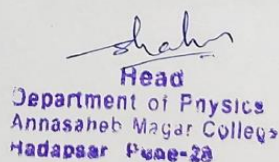 Head
Department of Physics
Annasaheb Magar College
Hadapsar Pune-28